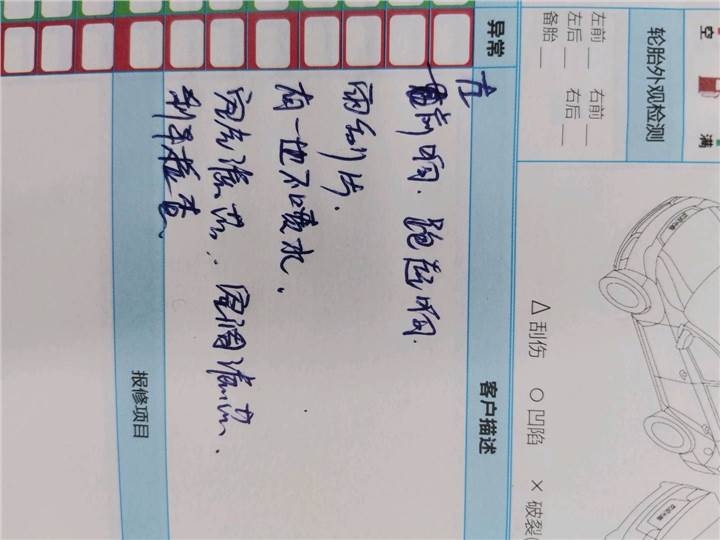 空
满
轮胎外观检测
左前 __ 右前 __
左后 __ 右后 __
备胎 __
△ 刮伤 ○ 凹陷 × 破裂
异常
客户描述
左前响. 跑起响.
雨刮片.
有一边不喷水.
空气滤芯. 空调滤芯.
刹车检查
报修项目